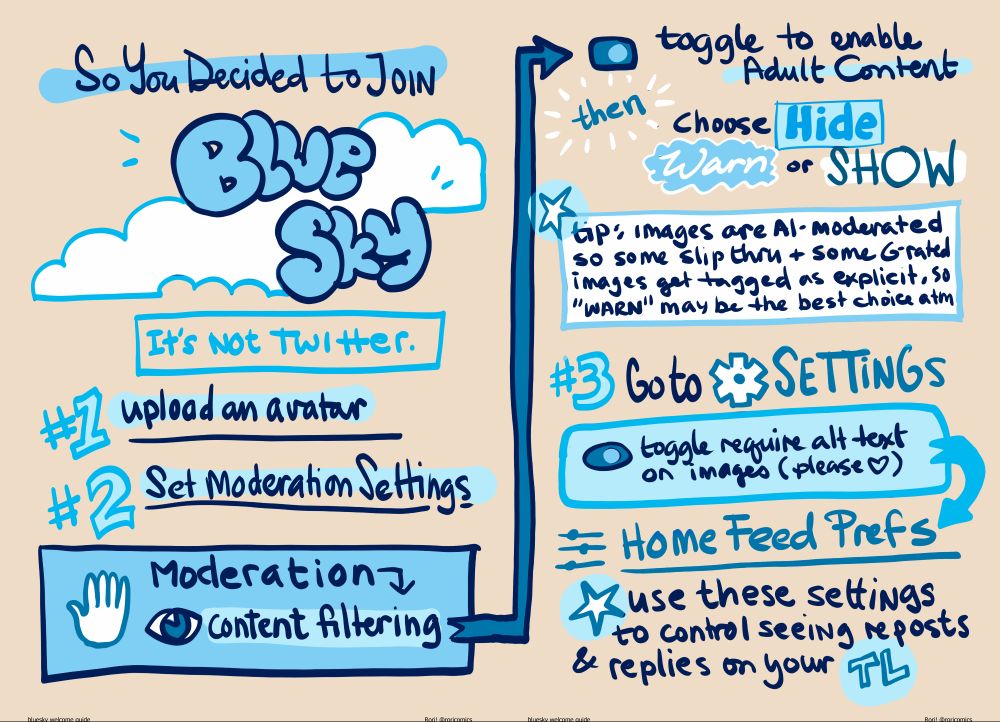 So You Decided to JOIN
BLUE
SKY
It's NOT TWITTER.
#1 upload an avatar
#2 Set Moderation Settings
Moderation
content filtering
toggle to enable
Adult Content
then
Choose Hide
Warn or SHOW
tip: images are AI-moderated
so some slip thru + some G-rated
images get tagged as explicit, so
"WARN" may be the best choice atm
#3 Go to SETTINGS
toggle require alt text
on images (please ♡)
Home Feed Prefs
use these settings
to control seeing reposts
& replies on your TL
bluesky welcome guide
Rori! @roricomics
bluesky welcome guide
Rori! @roricomics